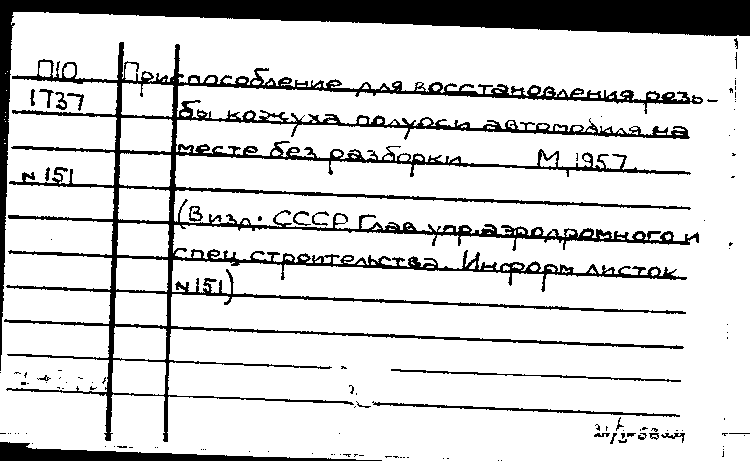 П10 Приспособление для восстановления резь-
1737 бы кожуха полуоси автомобиля на
месте без разборки. М, 1957.
N 151
(В изд. СССР. Глав. упр. аэродромного и
спец. строительства. Информ. листок
N 151)